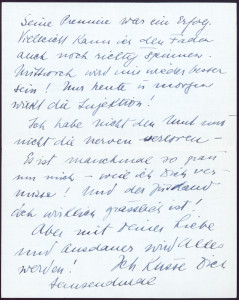 Seine Premiere war ein Erfolg.
Vielleicht kann ich den Faden
auch noch richtig spinnen.
Mittwoch wird mir wieder besser
sein! Nur heute u morgen
wirkt die Injektion!
Ich habe nicht den Mut und
nicht die nerven verloren –
Es ist manchmal so grau
um mich – wie ich Dich ver-
misse! Und der Zustand
doch wirklich grässlich ist!
Aber mit Deiner Liebe
und Ausdauer wird Alles
werden! Ich küsse Dich
tausendmal